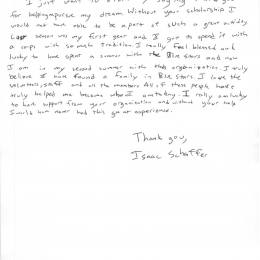 I just want to start by saying
for helping me pursue my dream. Without your scholarship I
would not have been able to be a part of such a great activity.
Last season was my first year and I got to spend it with
a corps with so much tradition. I really feel blessed and
lucky to have spent a summer with the Blue Stars and now
I am in my second summer with this organization. I truly
believe I have found a family in Blue Stars. I love the
volunteers, staff and all the members. All of these people have
truly helped me become who I am today. I really am lucky
to have support from your organization and without your help
I would have never had this great experience.
Thank you,
Isaac Schaffer